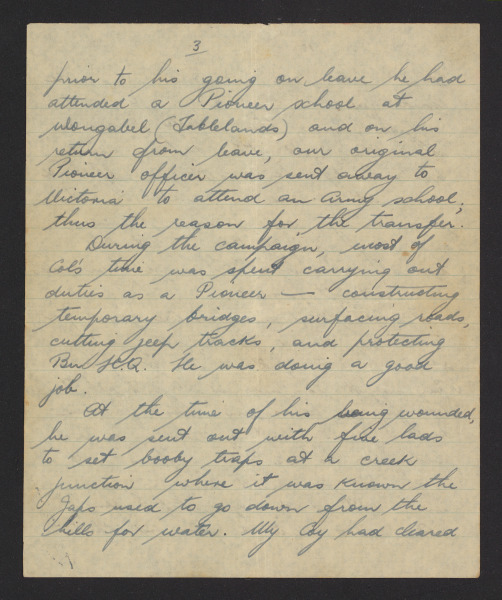 3
prior to his going on leave he had
attended a Pioneer school at
Wongabel (Tablelands) and on his
return from leave, our original
Pioneer officer was sent away to
Victoria to attend an Army school;
thus the reason for the transfer.
During the campaign, most of
Col's time was spent carrying out
duties as a Pioneer — constructing
temporary bridges, surfacing roads,
cutting jeep tracks, and protecting
Bn H.Q. He was doing a good
job.
At the time of his being wounded,
he was sent out with five lads
to set booby traps at a creek
junction where it was known the
Japs used to go down from the
hills for water. My Coy had cleared